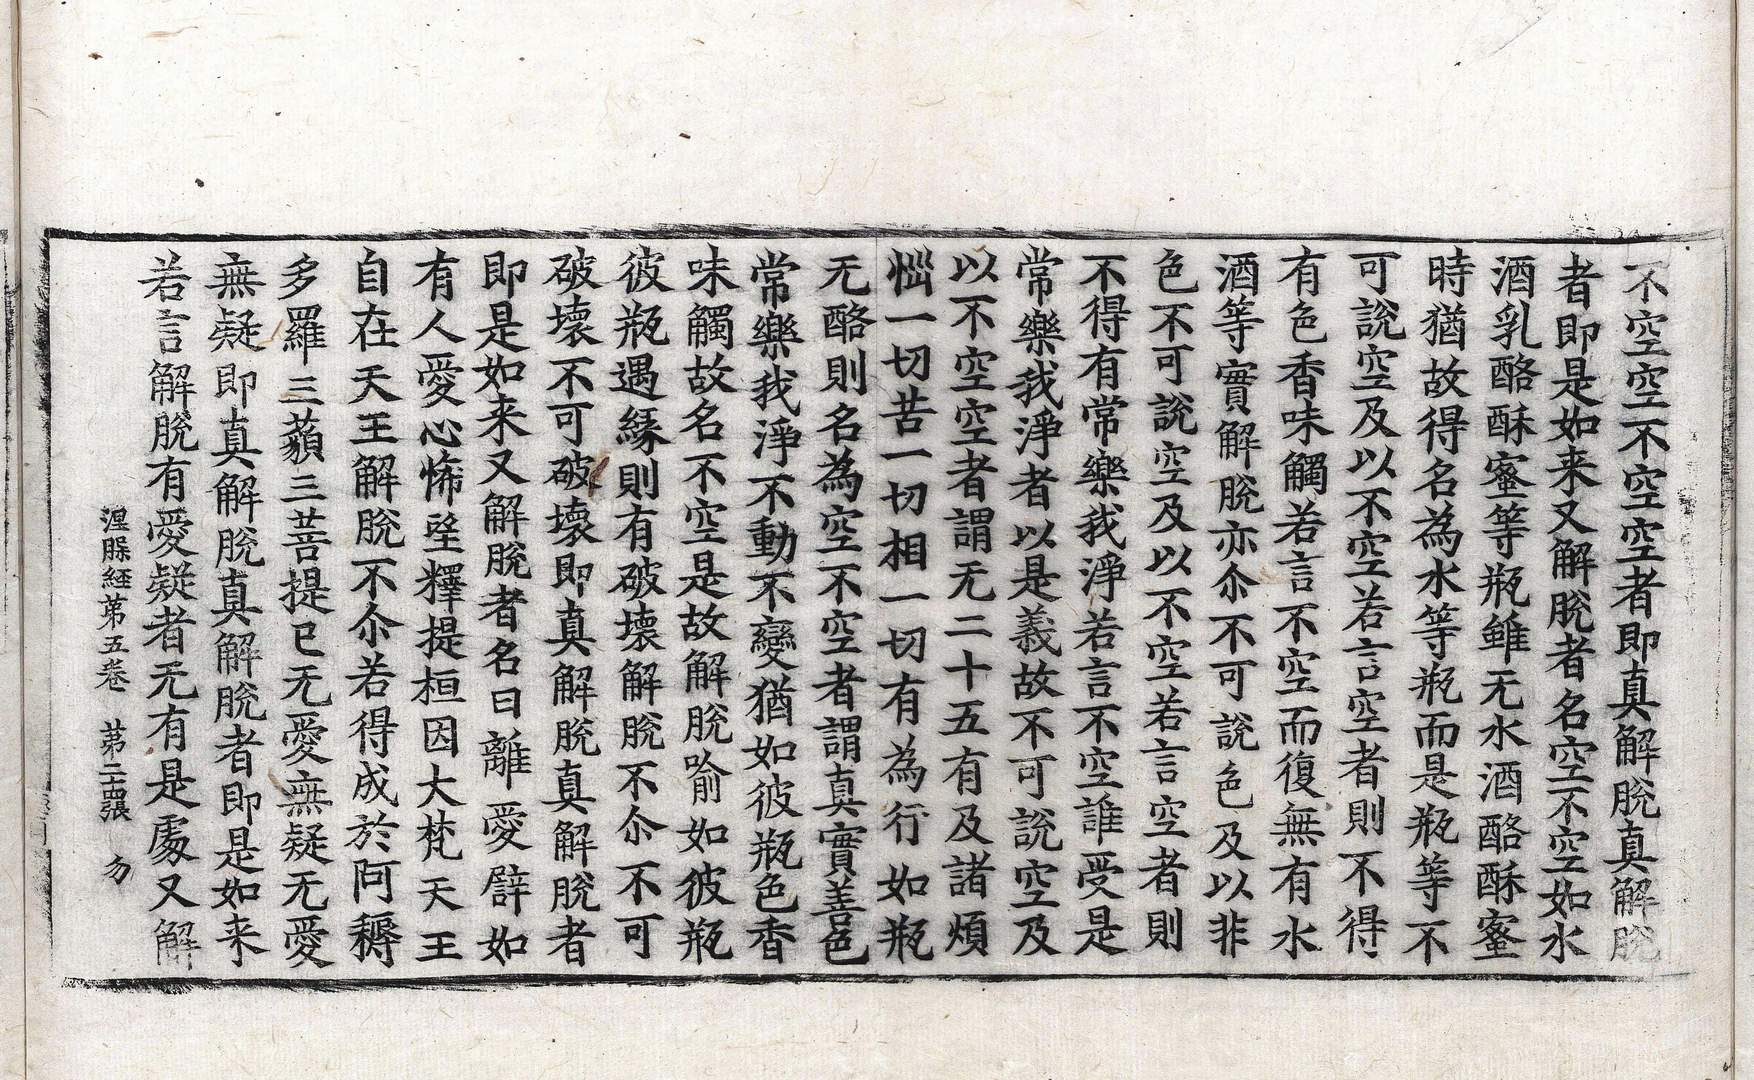 不空空不空空者即真解脫真解脫
者即是如来又解脫者名空不空如水
酒乳酪酥蜜等瓶雖无水酒酪酥蜜
時猶故得名為水等瓶而是瓶等不
可說空及以不空若言空者則不得
有色香味觸若言不空而復無有水
酒等實解脫亦尒不可說色及以非
色不可說空及以不空若言空者則
不得有常樂我淨若言不空誰受是
常樂我淨者以是義故不可說空及
以不空空者謂无二十五有及諸煩
惱一切苦一切相一切有為行如瓶
无酪則名為空不空者謂真實善色
常樂我淨不動不變猶如彼瓶色香
味觸故名不空是故解脫喻如彼瓶
彼瓶遇緣則有破壞解脫不尒不可
破壞不可破壞即真解脫真解脫者
即是如来又解脫者名曰離愛辟如
有人愛心悕望釋提桓因大梵天王
自在天王解脫不尒若得成於阿耨
多羅三藐三菩提已无愛無疑无愛
無疑即真解脫真解脫者即是如来
若言解脫有愛疑者无有是處又解
涅槃経第五卷 第二十四張 夛